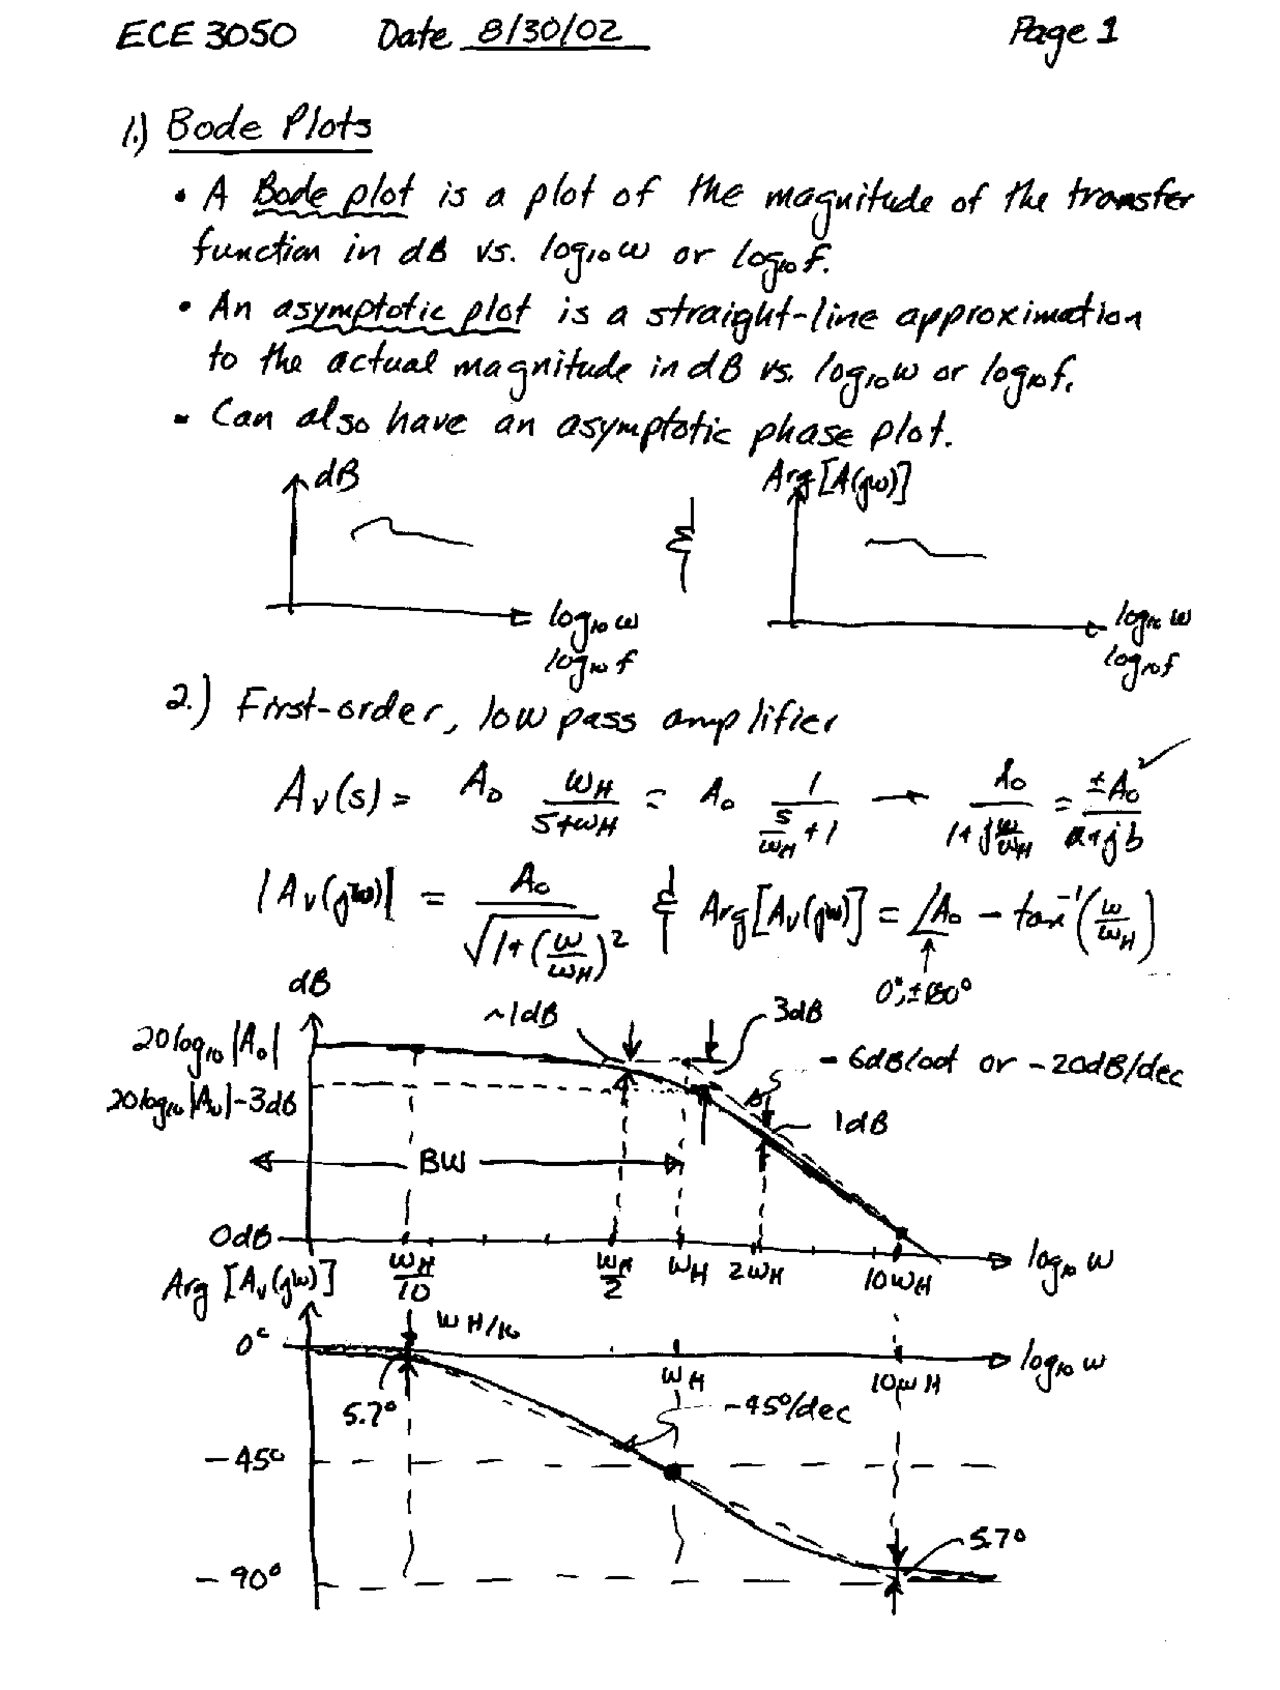 ECE 3050 Date 8/30/02 Page 1
1.) Bode Plots
• A Bode plot is a plot of the magnitude of the transfer
function in dB vs. log₁₀ω or log₁₀f.
• An asymptotic plot is a straight-line approximation
to the actual magnitude in dB vs. log₁₀ω or log₁₀f.
• Can also have an asymptotic phase plot.
dB & Arg[A(jω)]
log₁₀ω log₁₀ω
log₁₀f log₁₀f
2.) First-order, low pass amplifier
Aᵥ(s) = A₀ ω_H/(s+ω_H) = A₀ 1/(s/ω_H + 1) → A₀/(1+jω/ω_H) = ±A₀/(a+jb) ✓
|Aᵥ(jω)| = A₀/√(1+(ω/ω_H)²) & Arg[Aᵥ(jω)] = ∠A₀ - tan⁻¹(ω/ω_H)
0°,±180°
dB
~1dB 3dB
20log₁₀|A₀|
-6dB/oct or -20dB/dec
20log₁₀|A₀|-3dB
1dB
BW
0dB
ω_H/10 ω_H/2 ω_H 2ω_H 10ω_H log₁₀ω
Arg[Aᵥ(jω)]
ω_H/10
0° log₁₀ω
ω_H 10ω_H
5.7° -45°/dec
-45°
5.7°
-90°